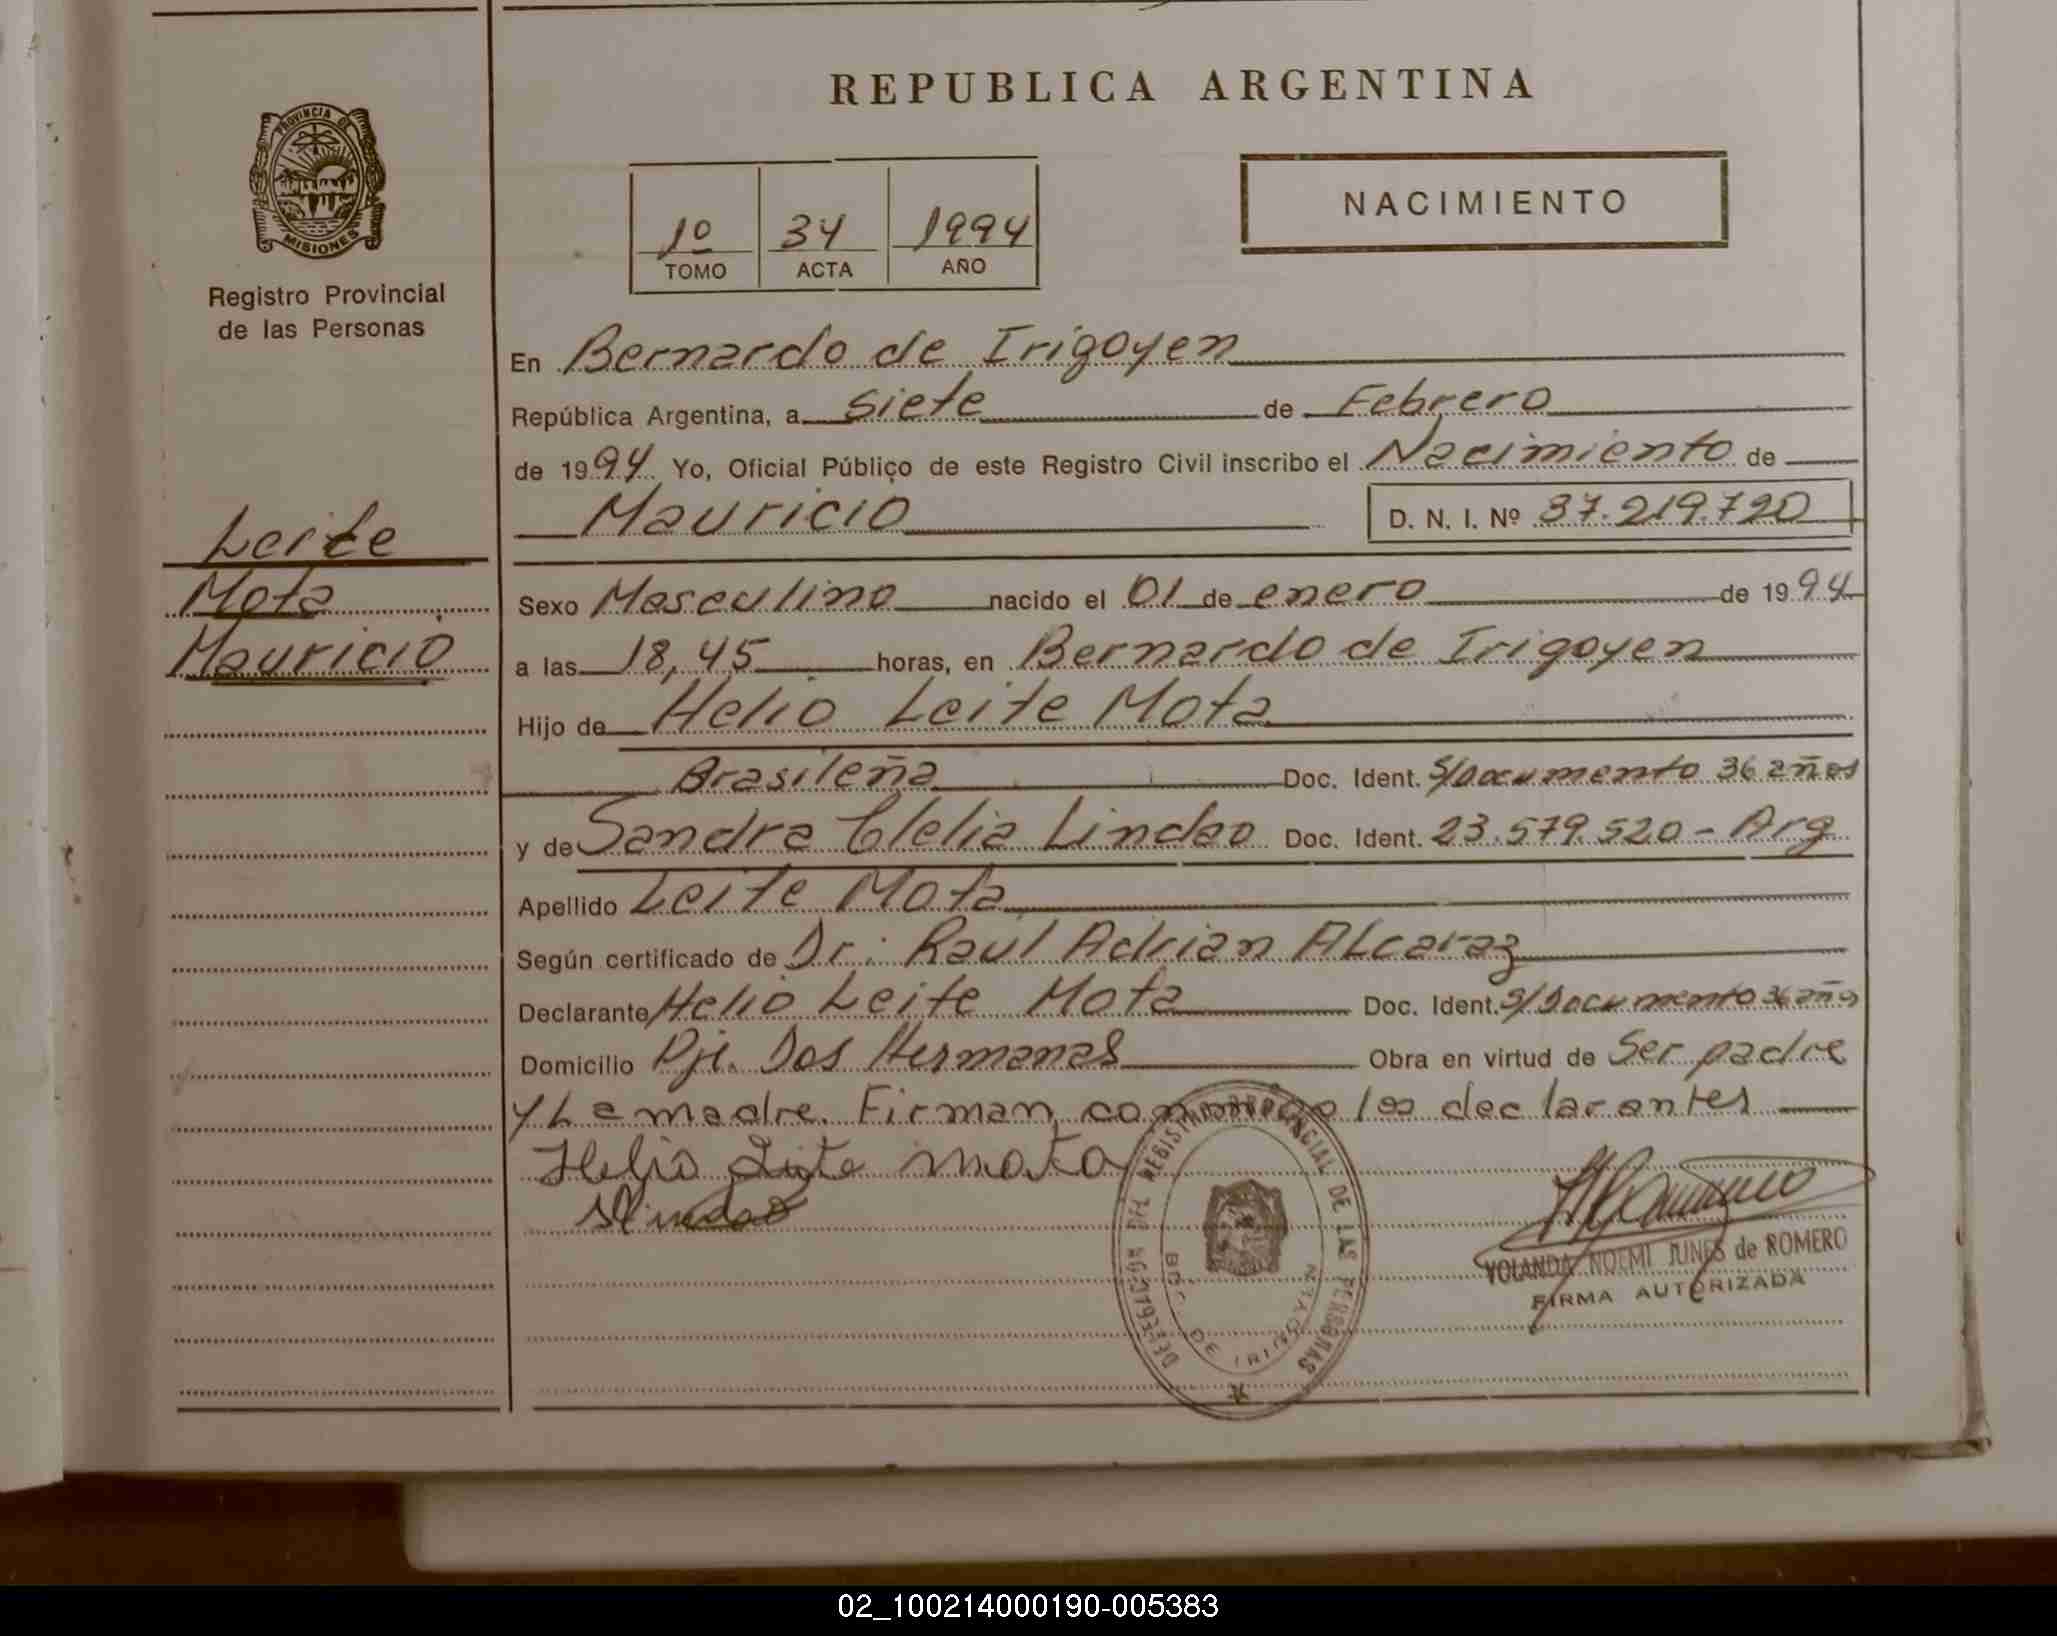 REPUBLICA ARGENTINA
PROVINCIA DE
MISIONES
Registro Provincial
de las Personas
1º 34 1994
TOMO ACTA AÑO
NACIMIENTO
En Bernardo de Irigoyen
República Argentina, a siete de Febrero
de 1994 Yo, Oficial Público de este Registro Civil inscribo el Nacimiento de
Mauricio D. N. I. Nº 37.219.720
Leite
Mota
Mauricio
Sexo Masculino nacido el 01 de enero de 1994
a las 18,45 horas, en Bernardo de Irigoyen
Hijo de Helio Leite Mota
Brasileña Doc. Ident. S/Documento 36 años
y de Sandra Clelia Lindao Doc. Ident. 23.579.520 - Arg
Apellido Leite Mota
Según certificado de Dr: Raul Adrian ALcaraz
Declarante Helio Leite Mota Doc. Ident. S/Documento 36 años
Domicilio Pje. Dos Hermanas Obra en virtud de Ser padre
y La madre. Firman conmigo los declarantes
Helio Leite Mota
DEL REGISTRO PROVINCIAL DE LAS PERSONAS
DE IRIGOYEN
YOLANDA NOEMI JUNES de ROMERO
FIRMA AUTORIZADA
02_100214000190-005383